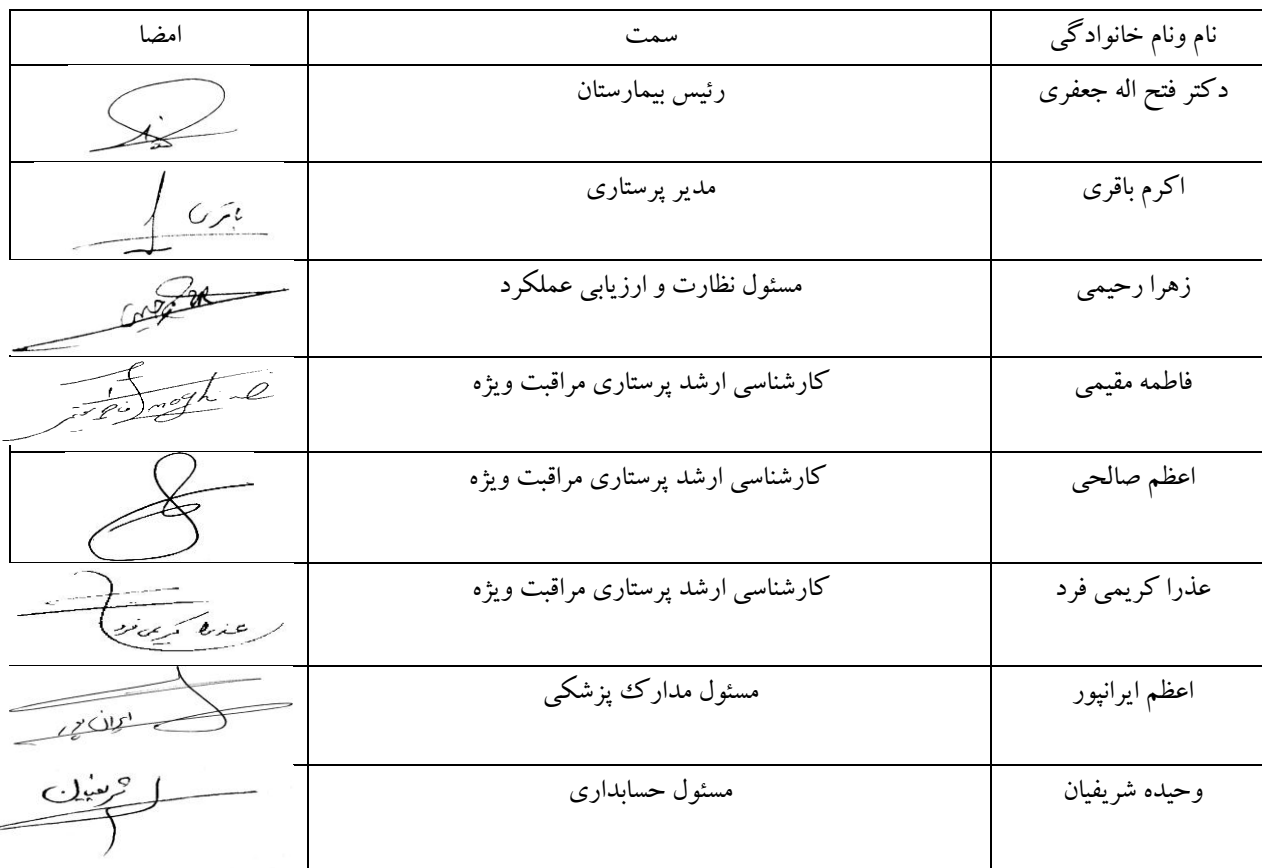 نام ونام خانوادگی سمت امضا
دکتر فتح اله جعفری رئیس بیمارستان
اکرم باقری مدیر پرستاری باقری
زهرا رحیمی مسئول نظارت و ارزیابی عملکرد
فاطمه مقیمی کارشناسی ارشد پرستاری مراقبت ویژه
اعظم صالحی کارشناسی ارشد پرستاری مراقبت ویژه
عذرا کریمی فرد کارشناسی ارشد پرستاری مراقبت ویژه عذرا کریمی فرد
اعظم ایرانپور مسئول مدارك پزشکی ایران پور
وحیده شریفیان مسئول حسابداری شریفیان